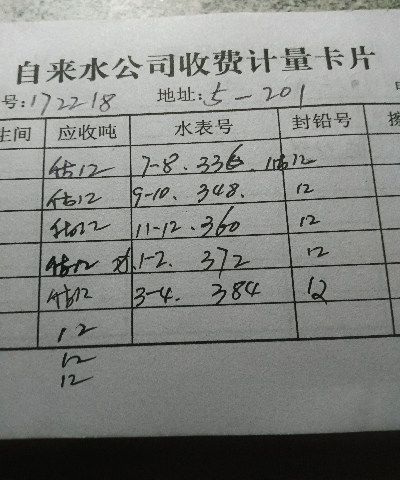 自来水公司收费计量卡片
号:172218 地址:5-201
生间 应收吨 水表号 封铅号
估12 7-8. 336. 12
估12 9-10. 348. 12
估12 11-12. 360 12
估12 1-2. 372 12
估12 3-4. 384 12
12
12
12